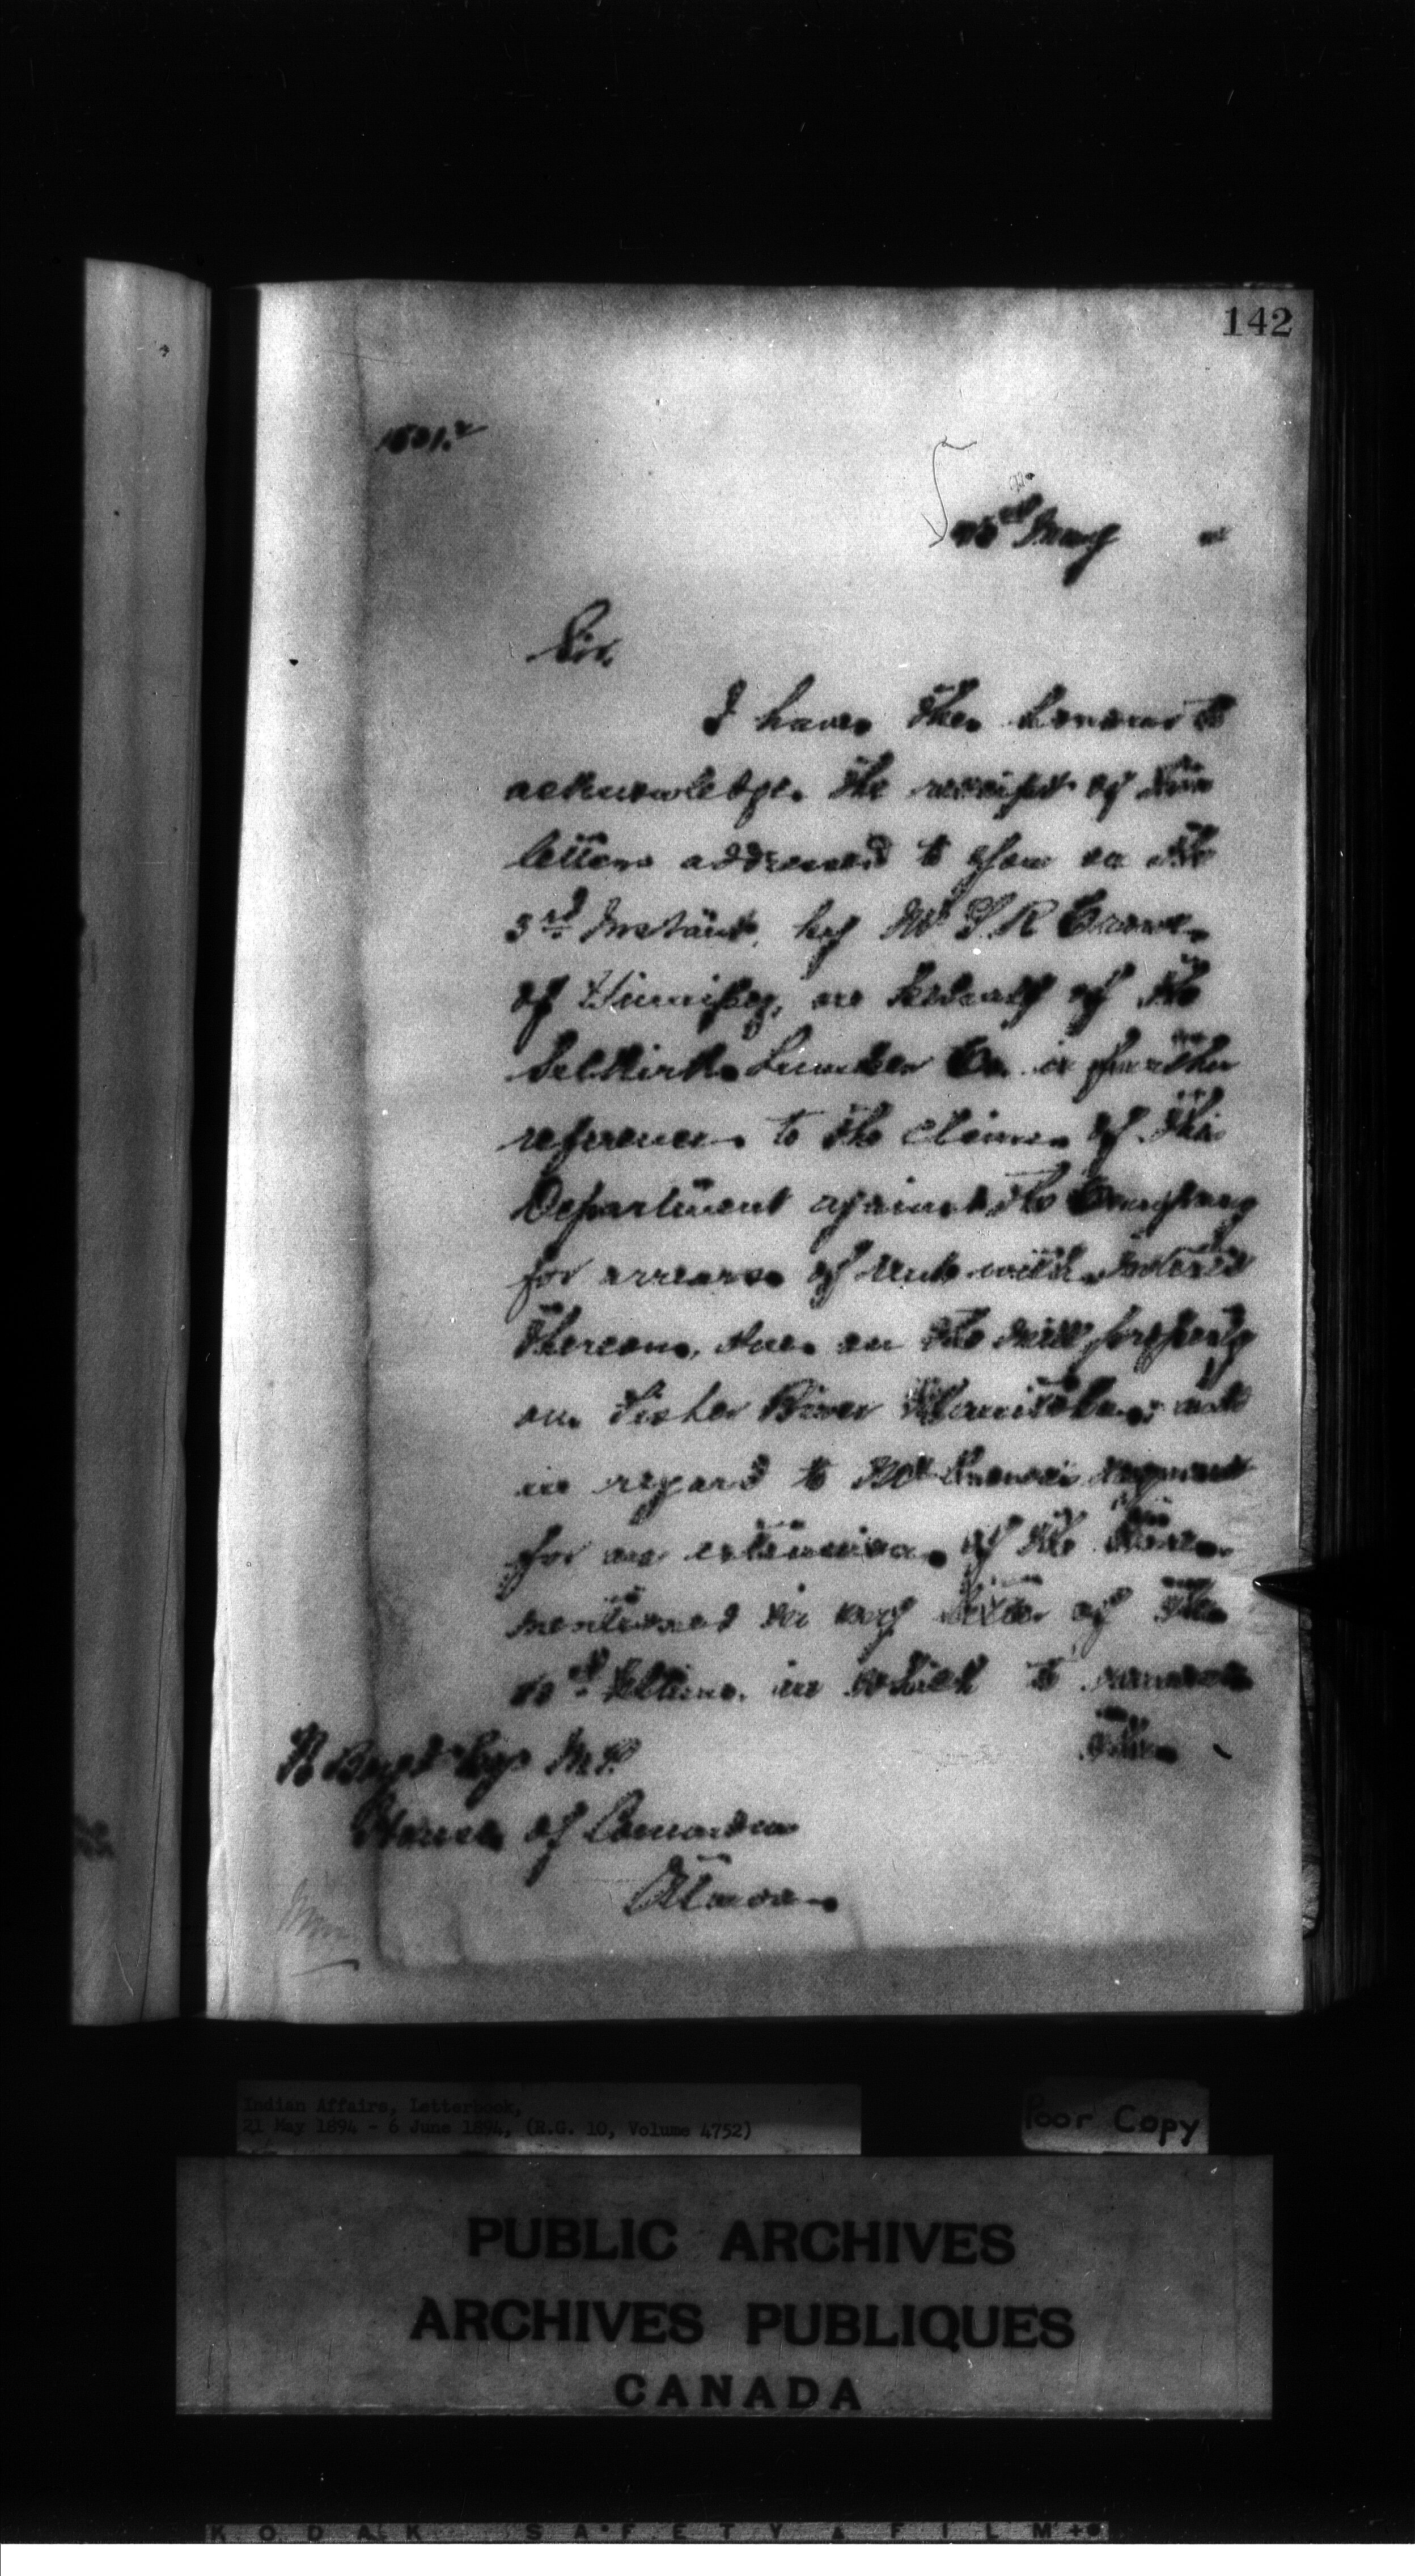 142
May
Sir,
I have the honour to
acknowledge the receipt of
letters addressed to you on the
3rd Instant, by Mr
of Winnipeg, on behalf of the
Selkirk Lumber Co. in further
reference to the claim of this
Department against the Company
for arrears of rent with interest
thereon, due on the mill property
on Fisher River Manitoba; and
in regard to request
for an extension of the time
mentioned in my letter of the
ultimo, in which to
House of Commons
Ottawa
Indian Affairs, Letterbook,
21 May 1894 - 6 June 1894, (R.G. 10, Volume 4752)
Poor Copy
PUBLIC ARCHIVES
ARCHIVES PUBLIQUES
CANADA
KODAK SAFETY FILM